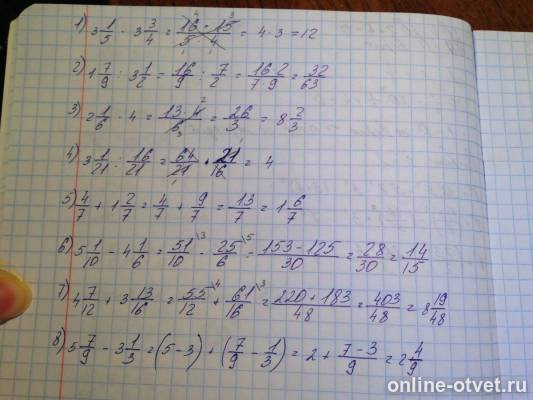 1) 3 1/5 · 3 3/4 = 16 · 15 / 5 · 4 = 4 · 3 = 12
2) 1 7/9 : 3 1/2 = 16/9 : 7/2 = 16 · 2 / 7 · 9 = 32/63
3) 2 1/6 · 4 = 13 · 4 / 6 = 26/3 = 8 2/3
4) 3 1/21 : 16/21 = 64/21 · 21/16 = 4
5) 4/7 + 1 2/7 = 4/7 + 9/7 = 13/7 = 1 6/7
6) 5 1/10 - 4 1/6 = 51/10 \3 - 25/6 \5 = 153 - 125 / 30 = 28/30 = 14/15
7) 4 7/12 + 3 13/16 = 55/12 \4 + 61/16 \3 = 220 + 183 / 48 = 403/48 = 8 19/48
8) 5 7/9 - 3 1/3 = (5 - 3) + (7/9 - 1/3) = 2 + 7 - 3 / 9 = 2 4/9
online-otvet.ru